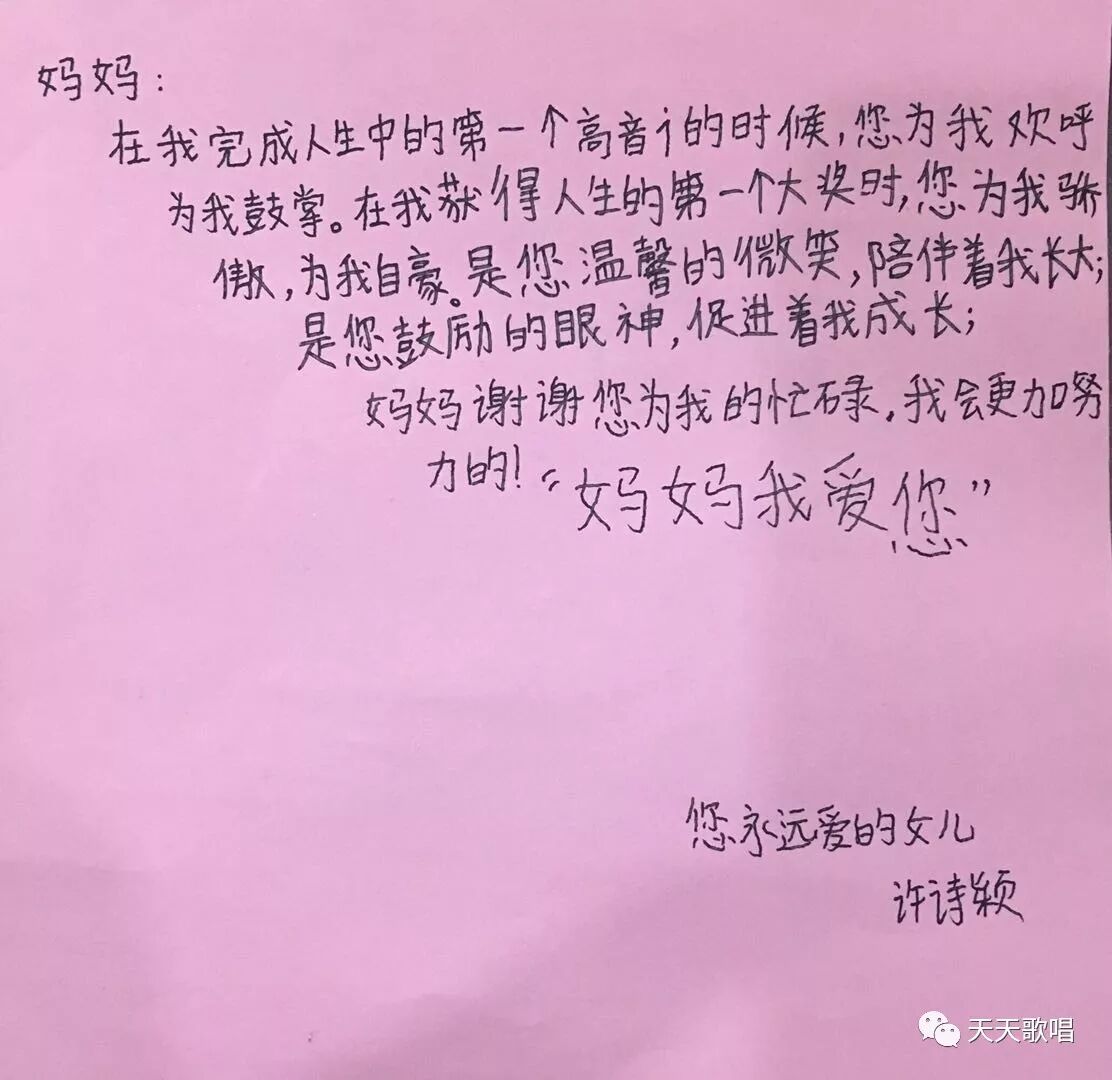 妈妈：
在我完成人生中的第一个高音i的时候，您为我欢呼
为我鼓掌。在我获得人生的第一个大奖时，您为我骄
傲，为我自豪。是您温馨的微笑，陪伴着我长大；
是您鼓励的眼神，促进着我成长；
妈妈谢谢您为我的忙碌，我会更加努
力的！“妈妈我爱您”
您永远爱的女儿
许诗颖
天天歌唱